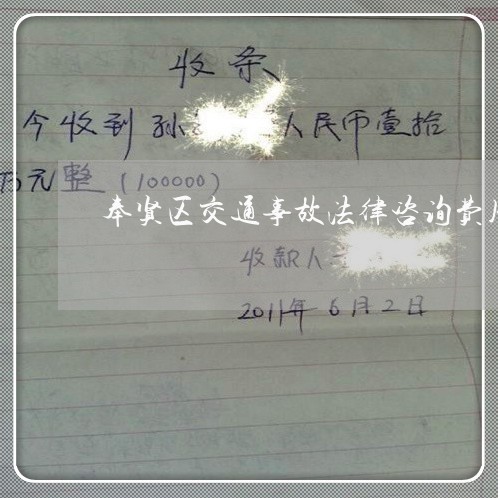 收条
今收到孙 人民币壹拾
万元整（100000）
奉贤区交通事故法律咨询费
收款人
2011年6月2日